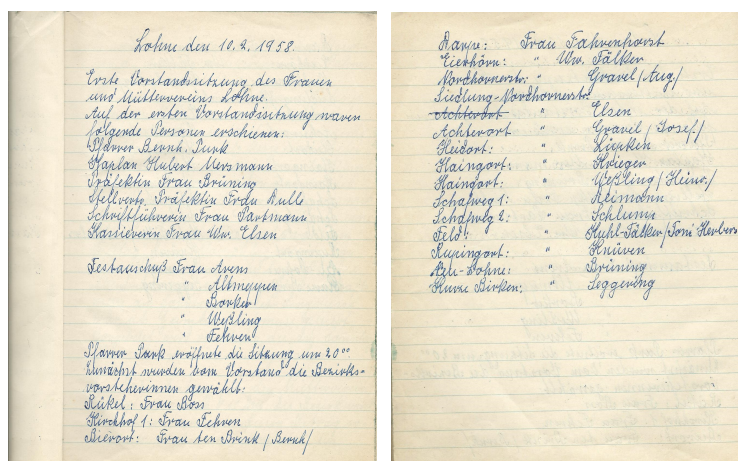 Lohne den 10.2.1958.
Erste Vorstandssitzung des Frauen
und Müttervereins Lohne.
Auf der ersten Vorstandssitzung waren
folgende Personen erschienen:
Pfarrer Bernh. Purk
Kaplan Hubert Mersmann
Präfektin Frau Brüning
Stellvertr. Präfektin Frau Dulle
Schriftführerin Frau Partmann
Kassiererin Frau Ww. Elsen
Festauschuß Frau Arens
" Altmeppen
" Borker
" Weßling
" Fehren
Pfarrer Purk eröffnete die Sitzung um 20⁰⁰
Zunächst wurden vom Vorstand die Bezirks-
vorsteherinnen gewählt:
Rükel: Frau Boss
Kirchhof 1: Frau Fehren
Bierort: Frau ten Brink /Bernh/
Darpe: Frau Fahrenhorst
Eierhörn: " Ww. Fälker
Nordhornerstr: " Gravel /Aug./
Siedlung-Nordhornerstr:
Achterort " Elsen
Achterort " Gravel /Josef./
Heidort: " Liepken
Haingort: " Krieger
Haingort: " Weßling /Heinr./
Schafweg 1: " Reimann
Schafweg 2: " Schlump
Feld: " Kuhl-Fälker/Toni Herbers
Rupingort: " Knüven
Neu-Lohne: " Brüning
Kurze Birken: " Seggering